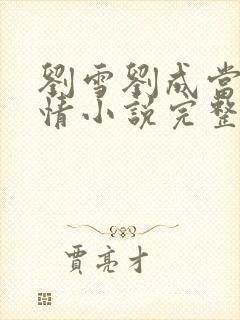 劉雪劉成當
情小說完整
賈亮才